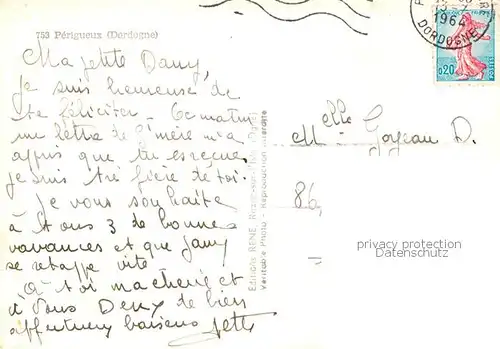 753 Périgueux (Dordogne)
Ma petite Dany,
Je suis heureuse de
te féliciter. Ce matin
une lettre de G'mère m'a
appris que tu es reçue
je suis très fière de toi.
Je vous souhaite
à tous 3 de bonnes
vavances et que Jamy
se retappe vite
à toi ma cherie et
à vous Deux de bien
affectueux baisers
1964
DORDOGNE
0,20
Editions RENÉ
Véritable Photo - Reproduction interdite
Melle D.
86
privacy protection
Datenschutz